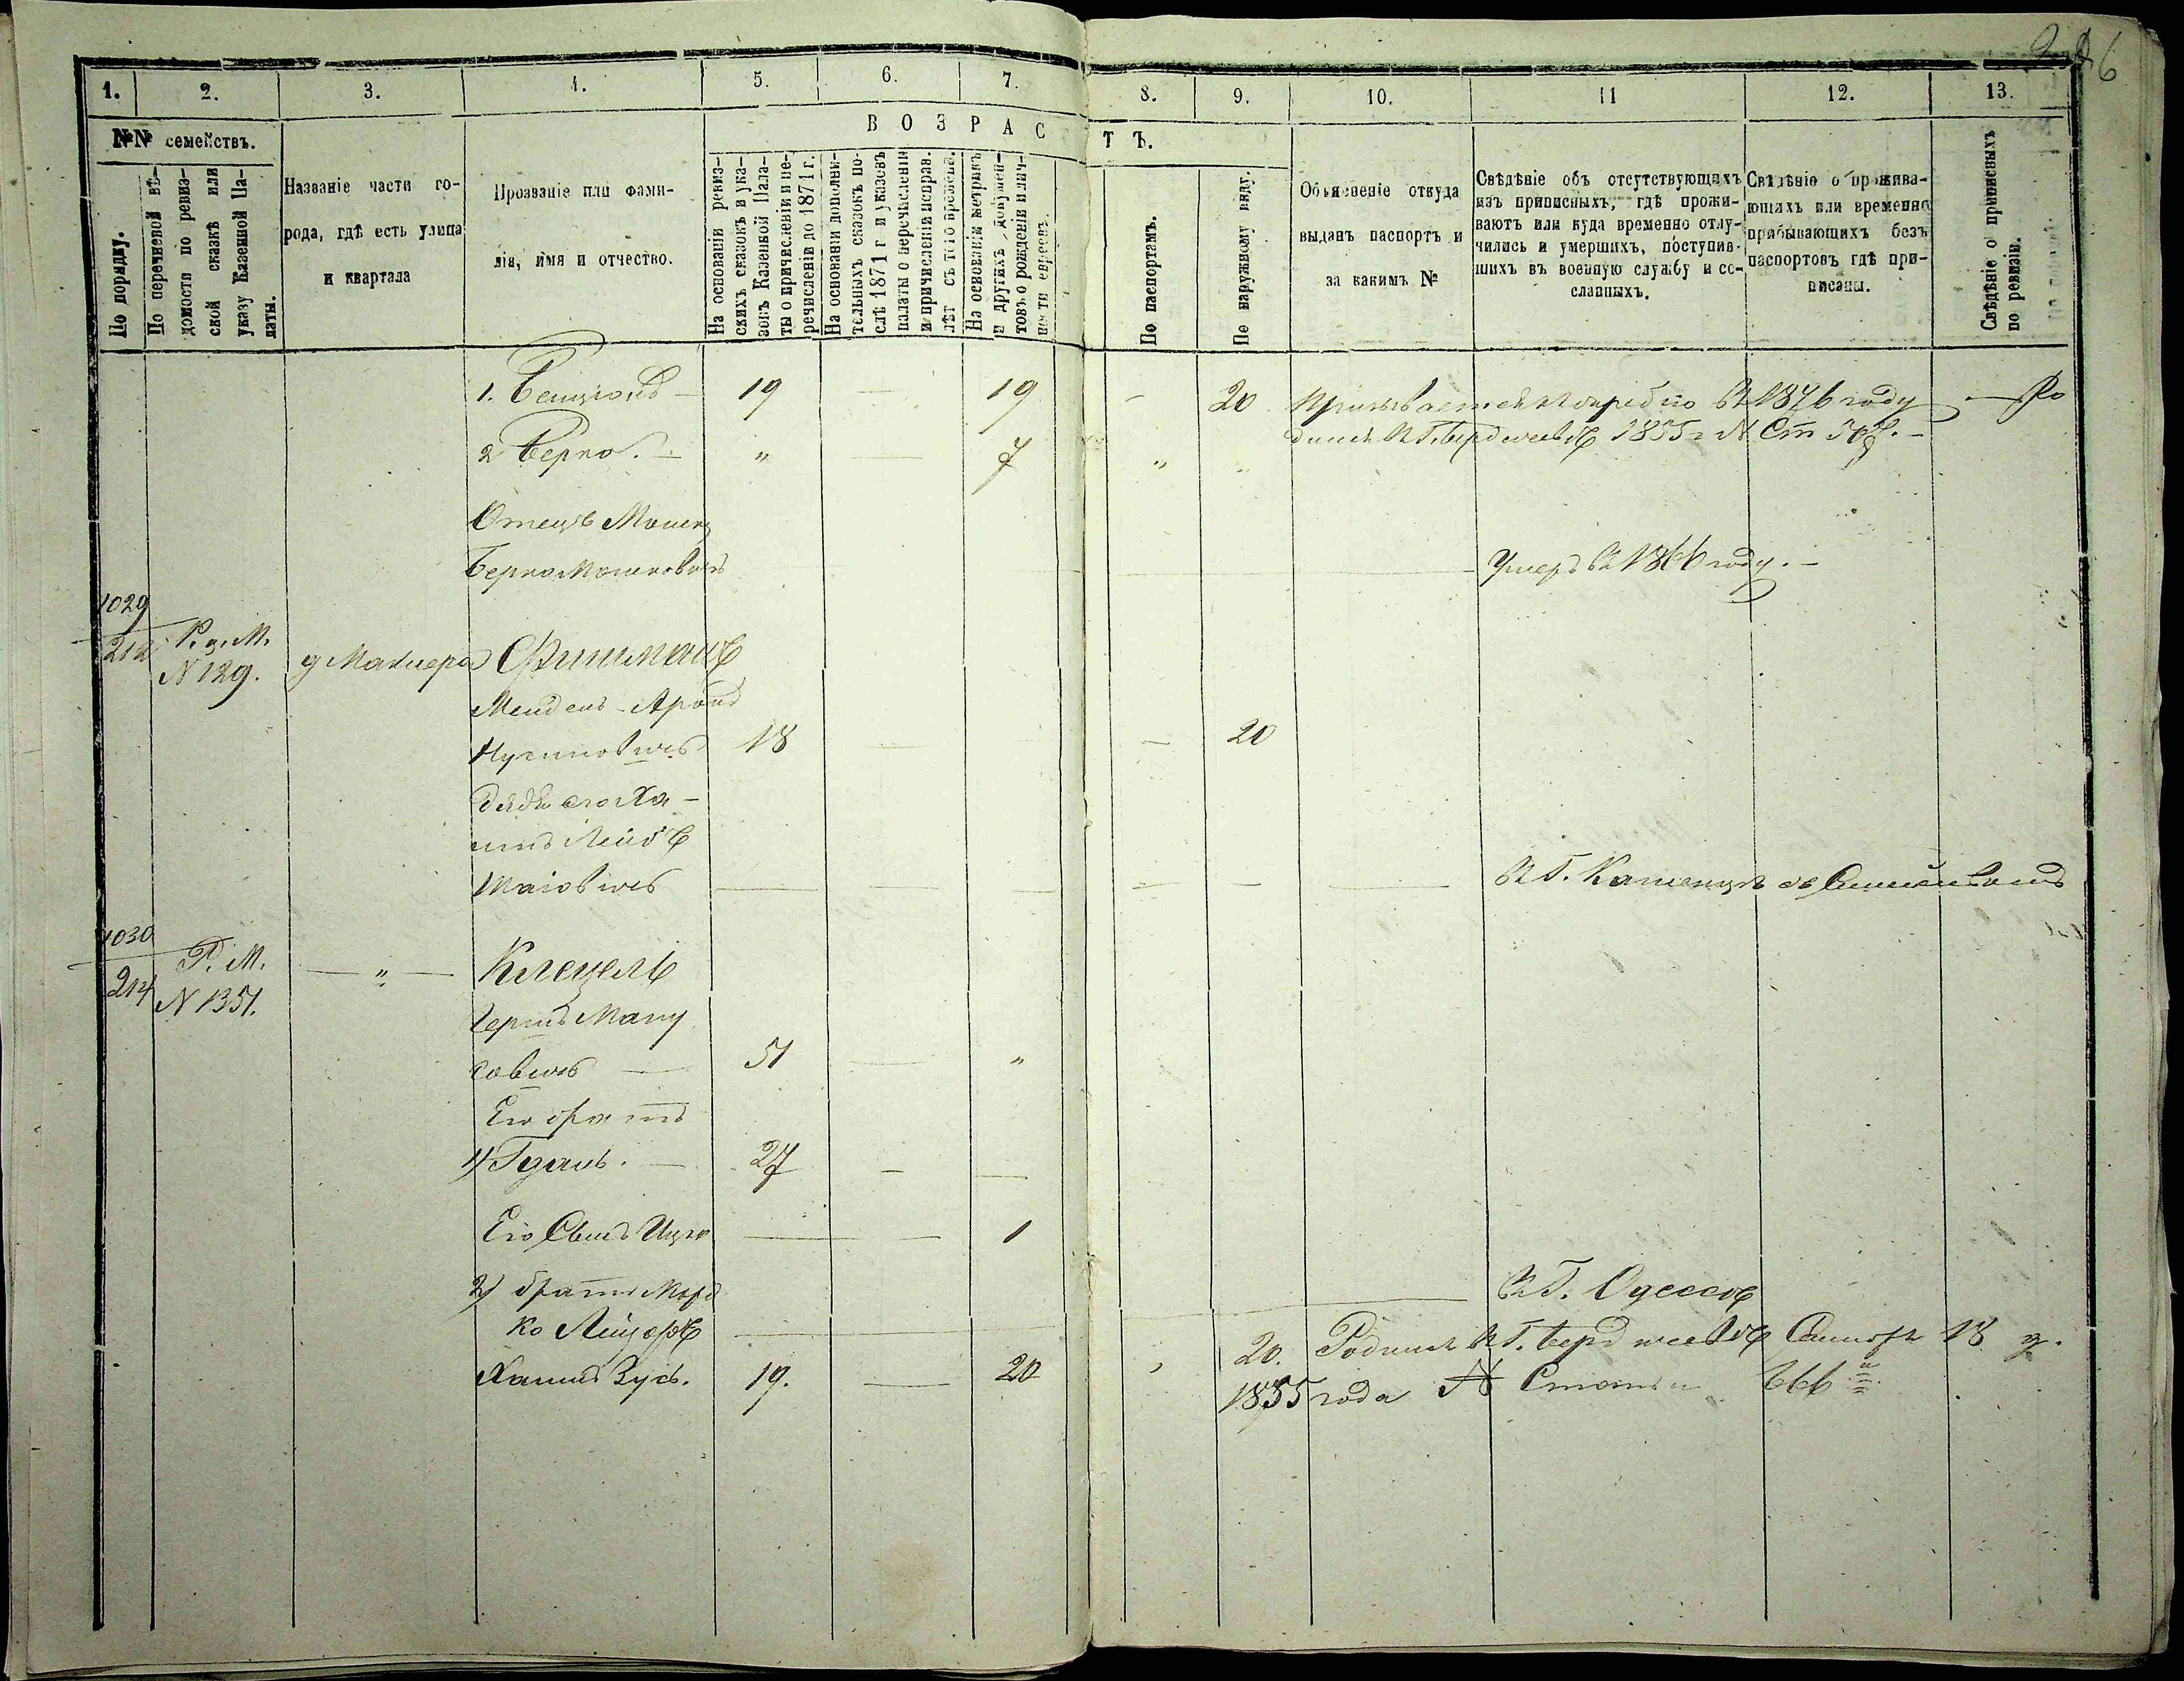 1. 2. 3. 4. 5. 6. 7. 8. 9. 10. 11 12. 13.
№№ семействъ.
По порядку.
По перечневой вѣ-
домости по ревиз-
ской сказкѣ или
указу Казенной Па-
латы.
Названіе части го-
рода, гдѣ есть улица
и квартала
Прозваніе или фами-
лія, имя и отчество.
ВОЗРАСТЪ.
На основаніи ревиз-
скихъ сказокъ и ука-
зовъ Казенной Пала-
ты о причисленіи и пе-
речисленіи до 1871 г.
На основаніи дополни-
тельныхъ сказокъ по-
слѣ 1871 г и указовъ
палаты о перечисленіи
и причисленіи исправ.
лѣт съ того времени.
На основаніи метрикъ
и другихъ докумен-
товъ о рожденіи и лич-
ности евреевъ.
По паспортамъ.
По наружному виду.
Объясненіе откуда
выданъ паспортъ и
за какимъ №
Свѣдѣніе объ отсутствующихъ
изъ приписныхъ, гдѣ прожи-
ваютъ или куда временно отлу-
чились и умершихъ, поступив-
шихъ въ военную службу и со-
сланныхъ.
Свѣдѣніе о прожива-
ющихъ или временно
прибывающихъ безъ
паспортовъ гдѣ при-
писаны.
Свѣдѣніе о приписныхъ
по ревизіи.
1. Бенціонъ — 19 — 19 — 20 Призывается къ жеребью въ 1876 году — Ро
дился въ Г. Бердичевѣ 1855 г №. Ст
2 Берко. — " — 7 " "
Отецъ Мошку
Берко Мошковичъ — Умеръ въ 1866 году. —
1029
212 Р. д. М.
N 129. Фишманъ
Мендель-Аронъ
Нусиновичъ 18 — — 20
дядя его Ха-
имъ Лейбъ
Шаіовичъ — — — — — — въ Г.
1030
214 Р. М.
N 1351. — " — Клецель
Герш Ману
совичъ — 51 — "
Его братъ
1) Гданъ. — 27 — —
Его Сынъ Ицко — — 1
2) братъ Морд
ко Лейзоръ — — въ Г. Одессѣ
Хаимъ Зусь. 19. — 20 20. Родился въ Г. Бердичевѣ 18 д.
1855 года № Статьи 666.